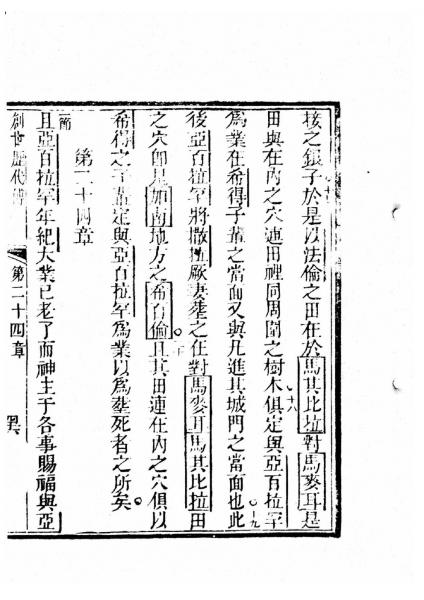 接之銀子於是以法倫之田在於馬其比拉對馬麥耳是
田與在內之穴連田裡同周圍之樹木俱定與亞百拉罕
十八
為業在希得子輩之當面又與凡進其城門之當面也此
十九
後亞百拉罕將撒拉厥妻塟之在對馬麥耳馬其比拉田
之穴即是加南地方之希百倫且其田連在內之穴俱以
二十
希得之子輩定與亞百拉罕為業以為塟死者之所矣
第二十四章
節
且亞百拉罕年紀大業已老了而神主于各事賜福與亞
創世歷代傳
第二十四章